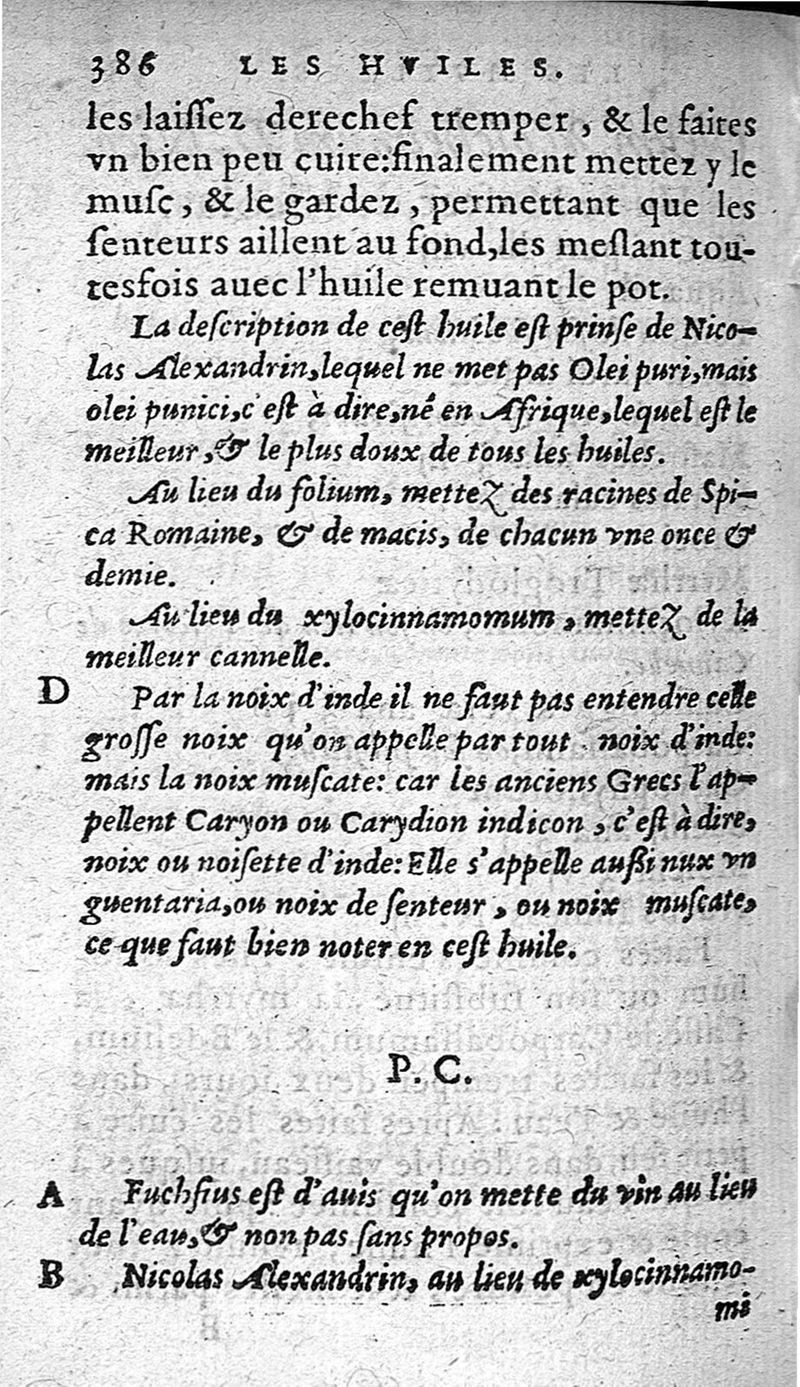 386 LES HVILES.
les laiſſez derechef tremper, & le faites
vn bien peu cuire:finalement mettez y le
muſc, & le gardez, permettant que les
ſenteurs aillent au fond,les meſlant tou-
tesfois auec l'huile remuant le pot.
La deſcription de ceſt huile eſt prinſe de Nico-
las Alexandrin,lequel ne met pas Olei puri,mais
olei punici,c'eſt à dire,né en Afrique,lequel eſt le
meilleur,& le plus doux de tous les huiles.
Au lieu du folium, mettez des racines de Spi-
ca Romaine, & de macis, de chacun vne once &
demie.
Au lieu du xylocinnamomum, mettez de la
meilleur cannelle.
D Par la noix d'inde il ne faut pas entendre celle
groſſe noix qu'on appelle par tout noix d'inde:
mais la noix muſcate: car les anciens Grecs l'ap-
pellent Caryon ou Carydion indicon, c'eſt à dire,
noix ou noiſette d'inde: Elle s'appelle außi nux vn
guentaria,ou noix de ſenteur, ou noix muſcate,
ce que faut bien noter en ceſt huile.
P. C.
A Fuchſius eſt d'auis qu'on mette du vin au lieu
de l'eau,& non pas ſans propos.
B Nicolas Alexandrin, au lieu de xylocinnamo-
mi